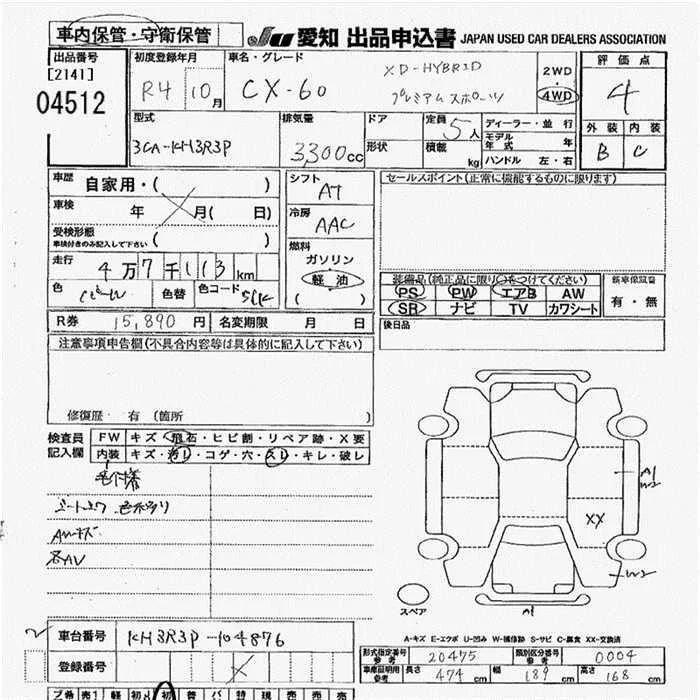 車内保管・守衛保管
愛知 出品申込書 JAPAN USED CAR DEALERS ASSOCIATION
出品番号
[2141]
04512
初度登録年月
R4 10月
車名・グレード
CX-60
XD-HYBRID
プレミアムスポーツ
2WD
4WD
評価点
4
外装 内装
B C
型式
3CA-KH3R3P
排気量
3,300cc
ドア
形状
定員
5人
積載 kg
ディーラー・並行
モデル年式 年
ハンドル 左・右
車歴 自家用・( )
車検 年 月( 日)
受検形態
車検付きのみ記入して下さい ( )
走行 4万7千113km
色
色替
色コード 51K
シフト
AT
冷房
AAC
燃料
ガソリン
軽油
( )
セールスポイント(正常に機能するものに限ります)
装備品(純正品に限り○をつけてください)
PS PW エアB AW
SR ナビ TV カワシート
新車保証書
有・無
後日品
R券 15,890円 名変期限 月 日
注意事項申告欄(不具合内容等は具体的に記入して下さい)
修復歴 有 (箇所 )
検査員
記入欄
FW キズ・飛石・ヒビ割・リペア跡・X要
内装 キズ・汚レ・コゲ・穴・スレ・キレ・破レ
A1
W2
XX
W2
A1
スペア
A-キズ E-エクボ U-凹み W-補修跡 S-サビ C-腐食 XX-交換済
車台番号 KH3R3P-104876
登録番号
型式指定番号
参考
20475
類別区分番号
参考
0004
車庫証明用
参考
長さ 474cm 幅 189cm 高さ 168cm